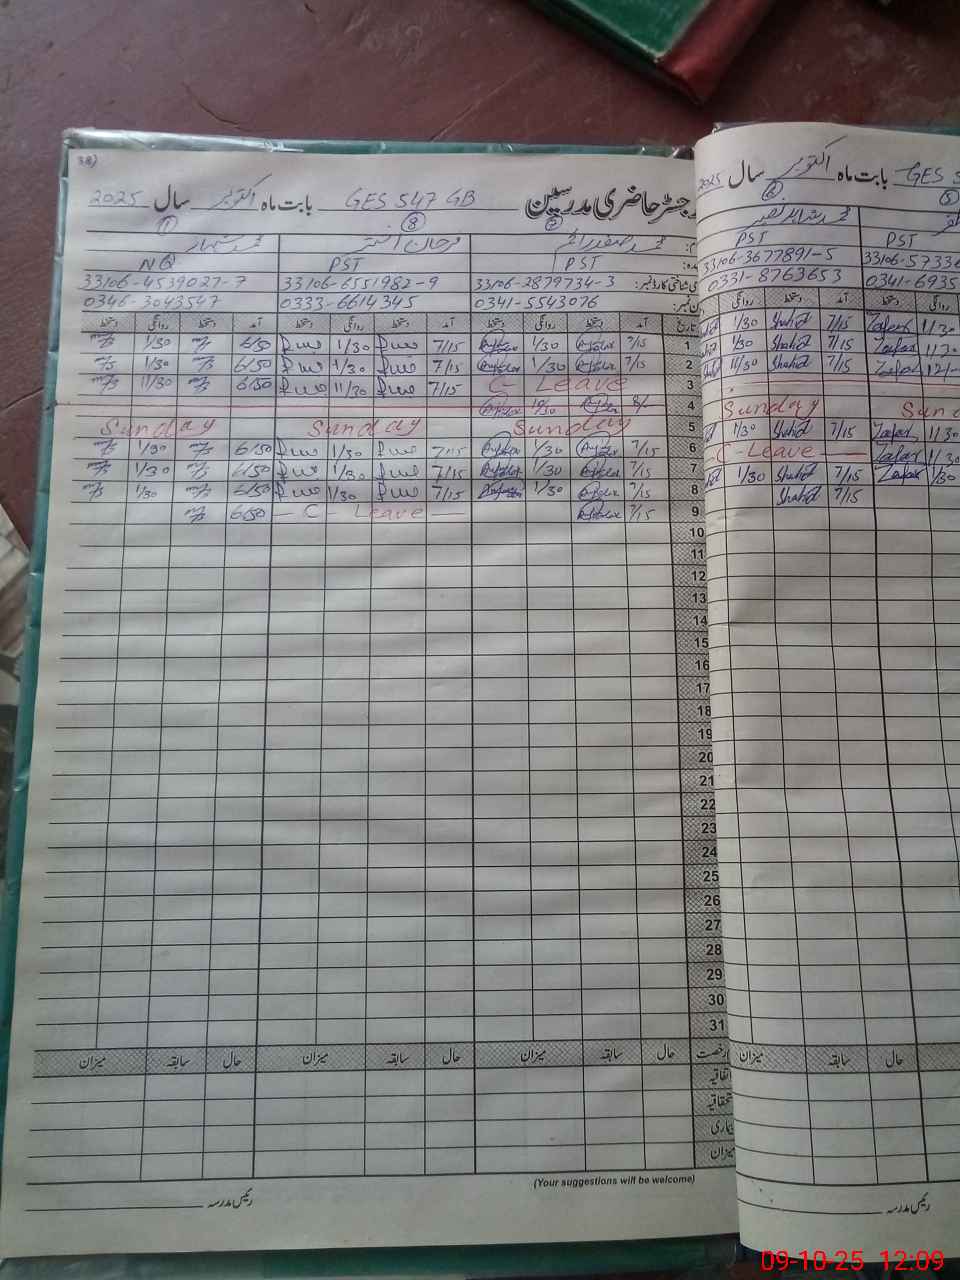 38)
رجسٹر حاضری مدرسین GES 547 GB بابت ماہ اکتوبر سال 2025
7 8 11
محمد صفدر فرحان اختر محمد شہباز
PST PST NQ
33106-2879734-3 33106-6551982-9 33106-4539027-7
0341-5543076 0333-6614345 0346-3043547
تاریخ آمد دستخط روانگی دستخط آمد دستخط روانگی دستخط آمد دستخط روانگی دستخط
1 7/15 1/30 7/15 1/30 6/50 1/30
2 7/15 1/30 7/15 1/30 6/50 1/30
3 C- Leave 7/15 11/30 6/50 11/30
4
5 Sunday Sunday Sunday
6 7/15 1/30 7/15 1/30 6/50 1/30
7 7/15 1/30 7/15 1/30 6/50 1/30
8 7/15 1/30 7/15 1/30 6/50 1/30
9 7/15 — C - Leave — 6/50
10
11
12
13
14
15
16
17
18
19
20
21
22
23
24
25
26
27
28
29
30
31
رخصت حال سابقہ میزان حال سابقہ میزان حال سابقہ میزان
اتفاقیہ
استحقاقیہ
بیماری
میزان
(Your suggestions will be welcome)
رئیس مدرسہ
GES 5 بابت ماہ اکتوبر سال 2025
5 6
PST PST
33106-57336 33106-3677891-5
0341-6935 0331-8763653
روانگی دستخط آمد دستخط روانگی
1/30 Zafar 7/15 Shahid 1/30
Zafar 7/15 Shahid 1/30
Zafar 7/15 Shahid 11/30
Sunday
1/30 Zafar 7/15 Shahid 1/30
1/30 Zafar C-Leave —
1/30 Zafar 7/15 Shahid 1/30
7/15 Shahid
حال سابقہ میزان
رئیس مدرسہ
09-10-25 12:09